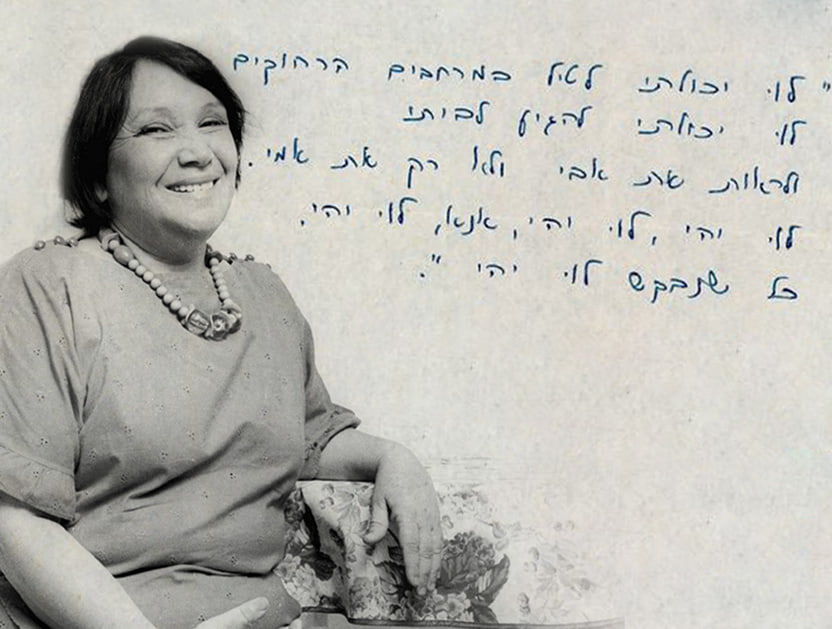 "לוּ יכולתי לטייל במרחבים הרחוקים
לוּ יכולתי להגיע לביתי
ולראות את אבי ולא רק את אמי.
לוּ יהי, לוּ יהי, אנא, לוּ יהי,
כל שנבקש לוּ יהי".